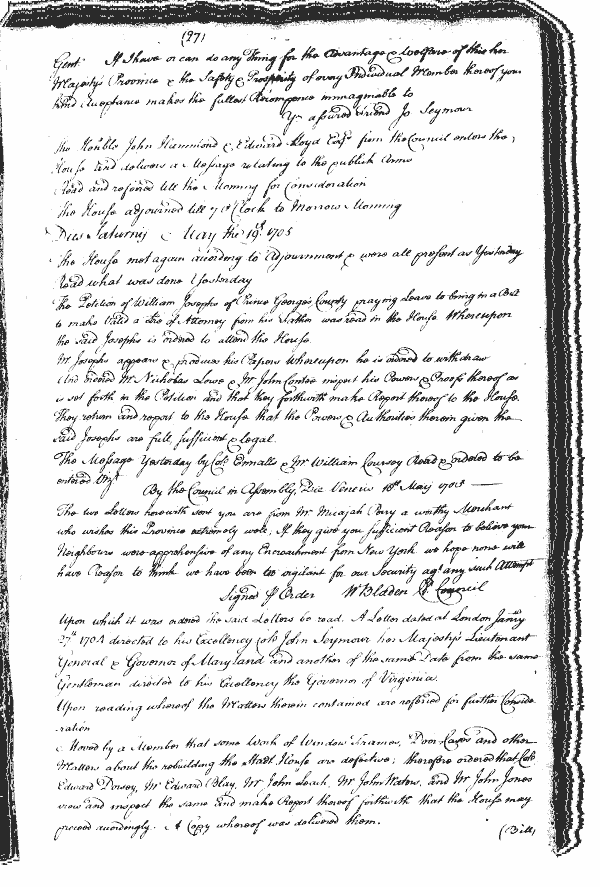 (27)
Gent. If I have or can do any thing for the Advantage & Welfare of this her
Majestys Province & the Safety & Prosperity of every Individual Member thereof your
kind Acceptance makes the fullest Recompence immaginable to
Yr assured friend Jo Seymour
The Honble John Hammond & Edward Lloyd Esqr from the Council enters the
House and delivers a Message relating to the publick Arms
Read and referred till the Morning for Consideration
The House adjourned till 7 o'Clock to Morrow Morning
Dies Saturnis May the 19th 1705
The House met again according to Adjournment & were all present as Yesterday
Read what was done Yesterday
The Petition of William Josephs of Prince George's County praying Leave to bring in a Bill
to make Valid a Lre of Attorney from his Father was read in the House Whereupon
the said Josephs is ordered to attend the House.
Mr Josephs appears & produces his Papers Whereupon he is ordered to withdraw
And ordered Mr Nicholas Lowe & Mr John Contee inspect his Powers & Proofs thereof as
is set forth in the Petition and that they forthwith make Report thereof to the House.
They return and report to the House that the Powers & Authorities therein given the
said Josephs are full, sufficient & legal.
The Message Yesterday by Col. Ennalls & Mr William Coursey Read & ordered to be
entered Vizt
By the Council in Assembly, Die Veneris 18th May 1705
The two Letters herewith sent you are from Mr Micajah Perry a worthy Merchant
who wishes this Province extremely well, If they give you sufficient Reason to believe your
Neighbours were apprehensive of any Encroachment from New York we hope none will
have Reason to think we have been too vigilant for our Security agt any such Attempt
Signed P Order W Bladen Cl. Council
Upon which it was ordered the said Letters be read. A Letter dated at London Janry
27th 1704 directed to his Excellency Col. John Seymour her Majesty's Lieutenant
General & Governor of Maryland and another of the same Date from the same
Gentleman directed to his Excellency the Governor of Virginia.
Upon reading whereof the Matters therein contained are referred for further Conside
ration
Moved by a Member that some Work of Window Frames, Door Cases and other
Matters about the rebuilding the Stadt House are defective; therefore ordered that Col.
Edward Dorsey, Mr Edward Blay, Mr John Leach, Mr John Waters, and Mr John Jones
view and inspect the same and make Report thereof forthwith that the House may
proceed accordingly. A Copy whereof was delivered them.
(Bill)